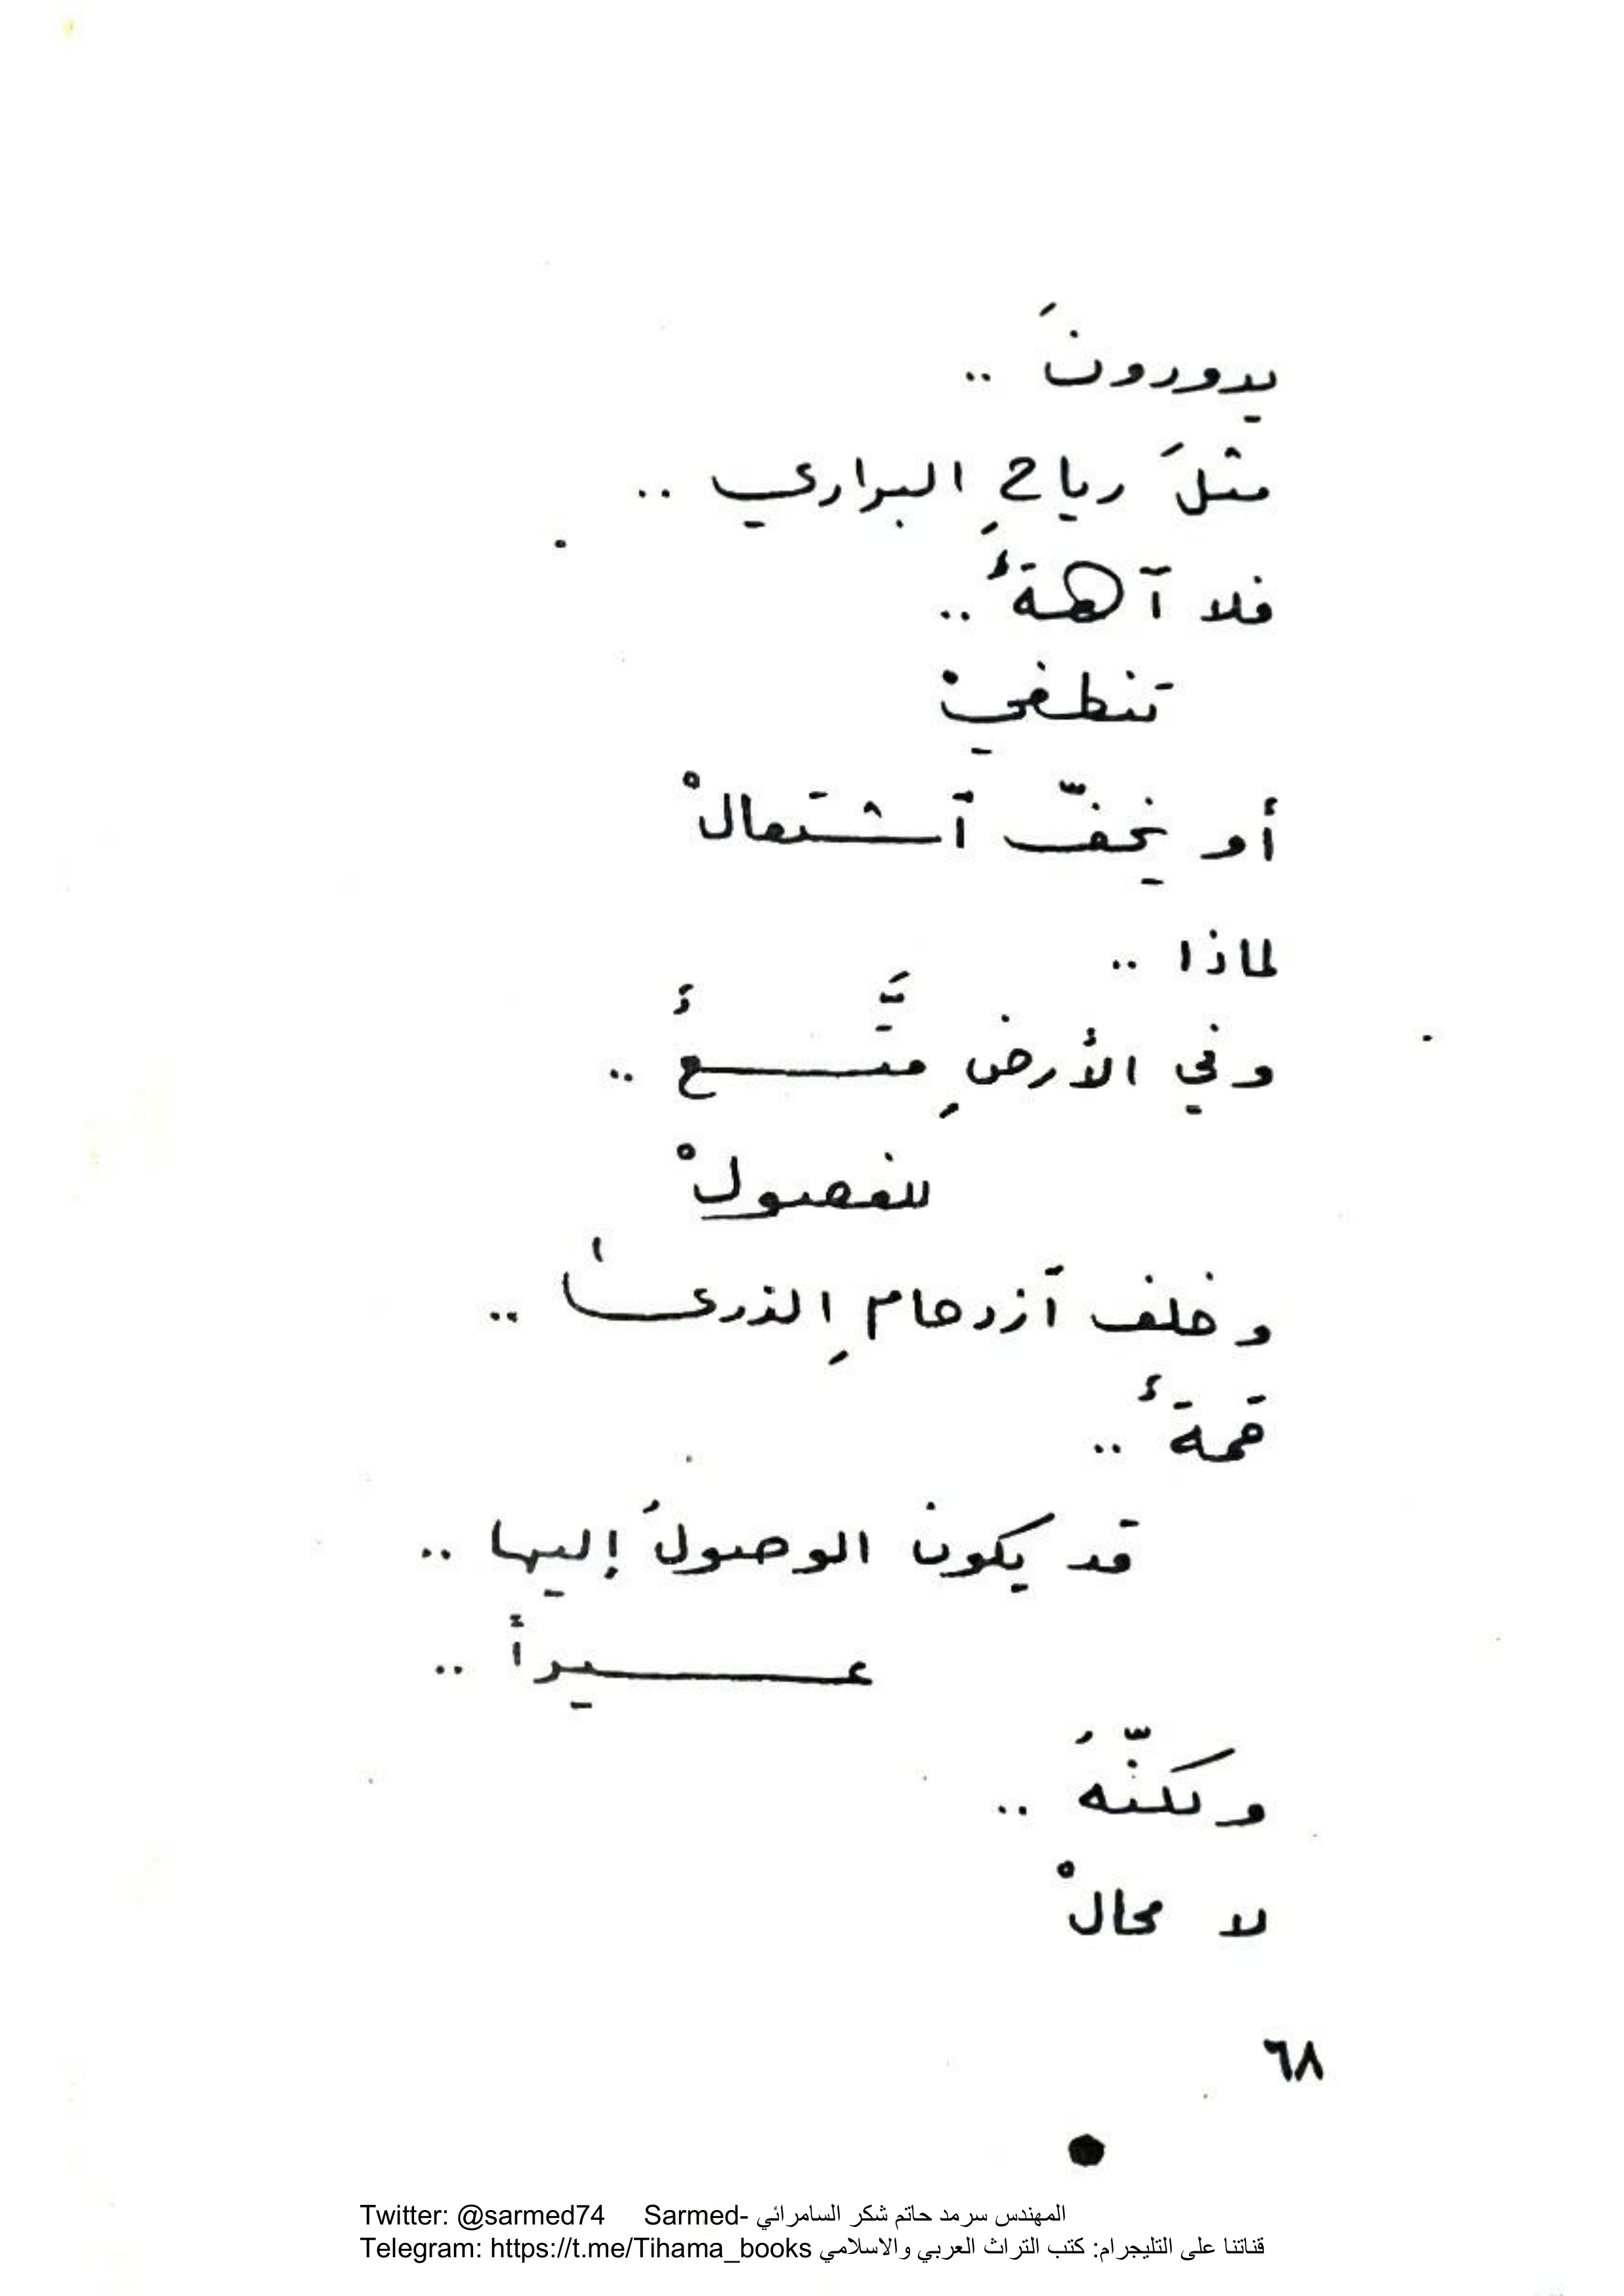 يدورونَ ..
مثلَ رياحِ البراري ..
فلا آهةٌ ..
تنطفيْ
أو يخفّ ٱشتعالْ
لماذا ..
وفي الأرضِ متَّسعٌ ..
للفصولْ
وخلف ٱزدحامِ الذرىٰ ..
قمةٌ ..
قد يكون الوصولُ إليها ..
عسيراً ..
ولكنّهُ ..
لا محالْ
٦٨
Twitter: @sarmed74 Sarmed- المهندس سرمد حاتم شكر السامرائي
Telegram: https://t.me/Tihama_books قناتنا على التليجرام: كتب التراث العربي والاسلامي